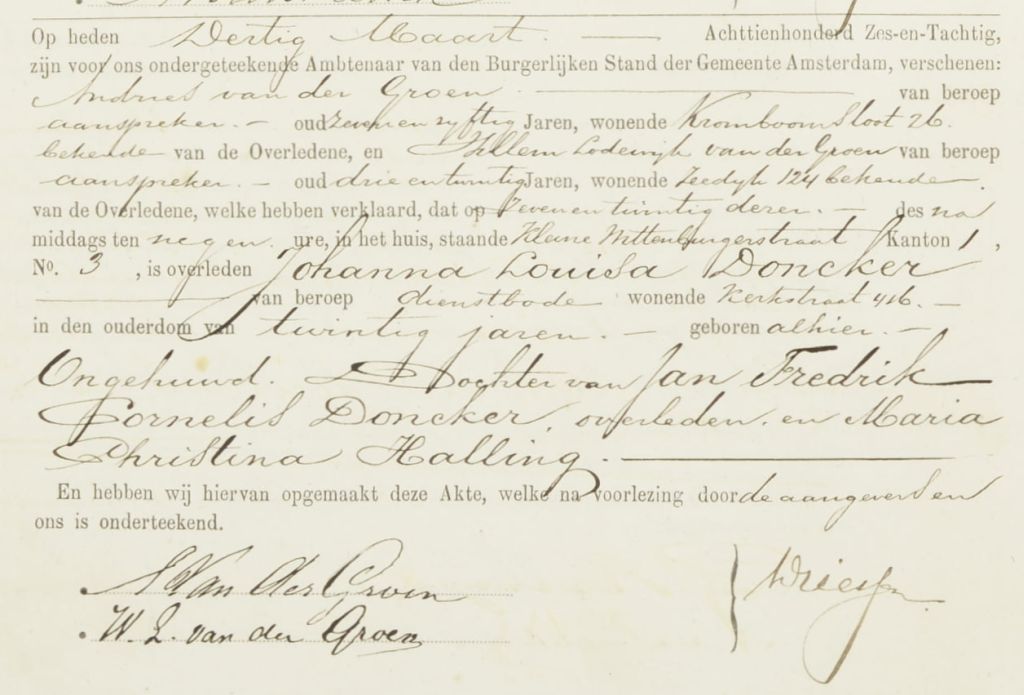 Op heden Dertig Maart. Achttienhonderd Zes-en-Tachtig,
zijn voor ons ondergeteekende Ambtenaar van den Burgerlijken Stand der Gemeente Amsterdam, verschenen:
Andries van der Groen van beroep
aanspreker. oud zeven en vyftig Jaren, wonende Kromboom Sloot 26.
bekende van de Overledene, en Willem Lodewijk van der Groen van beroep
aanspreker. oud drie en twintig Jaren, wonende Zeedyk 124 bekende
van de Overledene, welke hebben verklaard, dat op Zeven en twintig dezer. des na
middags ten negen. ure, in het huis, staande Kleine Wittenburgerstraat Kanton 1,
No. 3, is overleden Johanna Louisa Doncker
van beroep dienstbode wonende Kerkstraat 416.
in den ouderdom van twintig jaren. geboren alhier.
Ongehuwd. Dochter van Jan Fredrik
Cornelis Doncker, overleden. en Maria
Christina Halling.
En hebben wij hiervan opgemaakt deze Akte, welke na voorlezing door de aangevers en
ons is onderteekend.
A Van der Groen
W. L. van der Groen